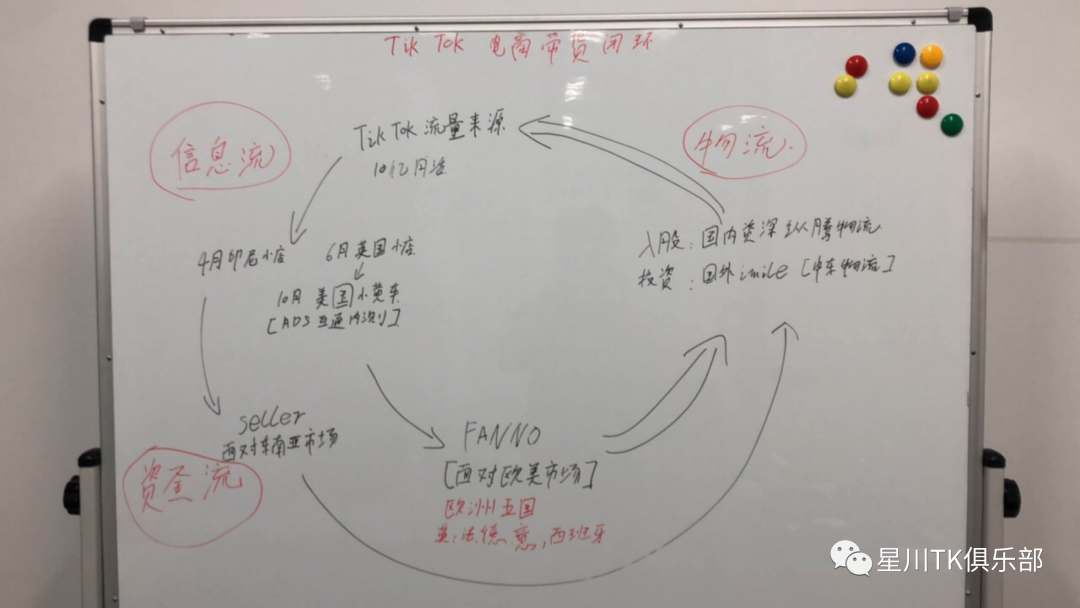 TikTok 电商带货闭环
信息流
TikTok 流量来源
10亿月活
物流.
4月印尼小店
6月英国小店
10月 美国小黄车
[ADS互通内测]
入股：国内资深纵腾物流
投资：国外imile [中东物流]
seller
面对东南亚市场
资金流
FANNO
[面对欧美市场]
欧洲五国
英,法,德,意,西班牙
星川TK俱乐部